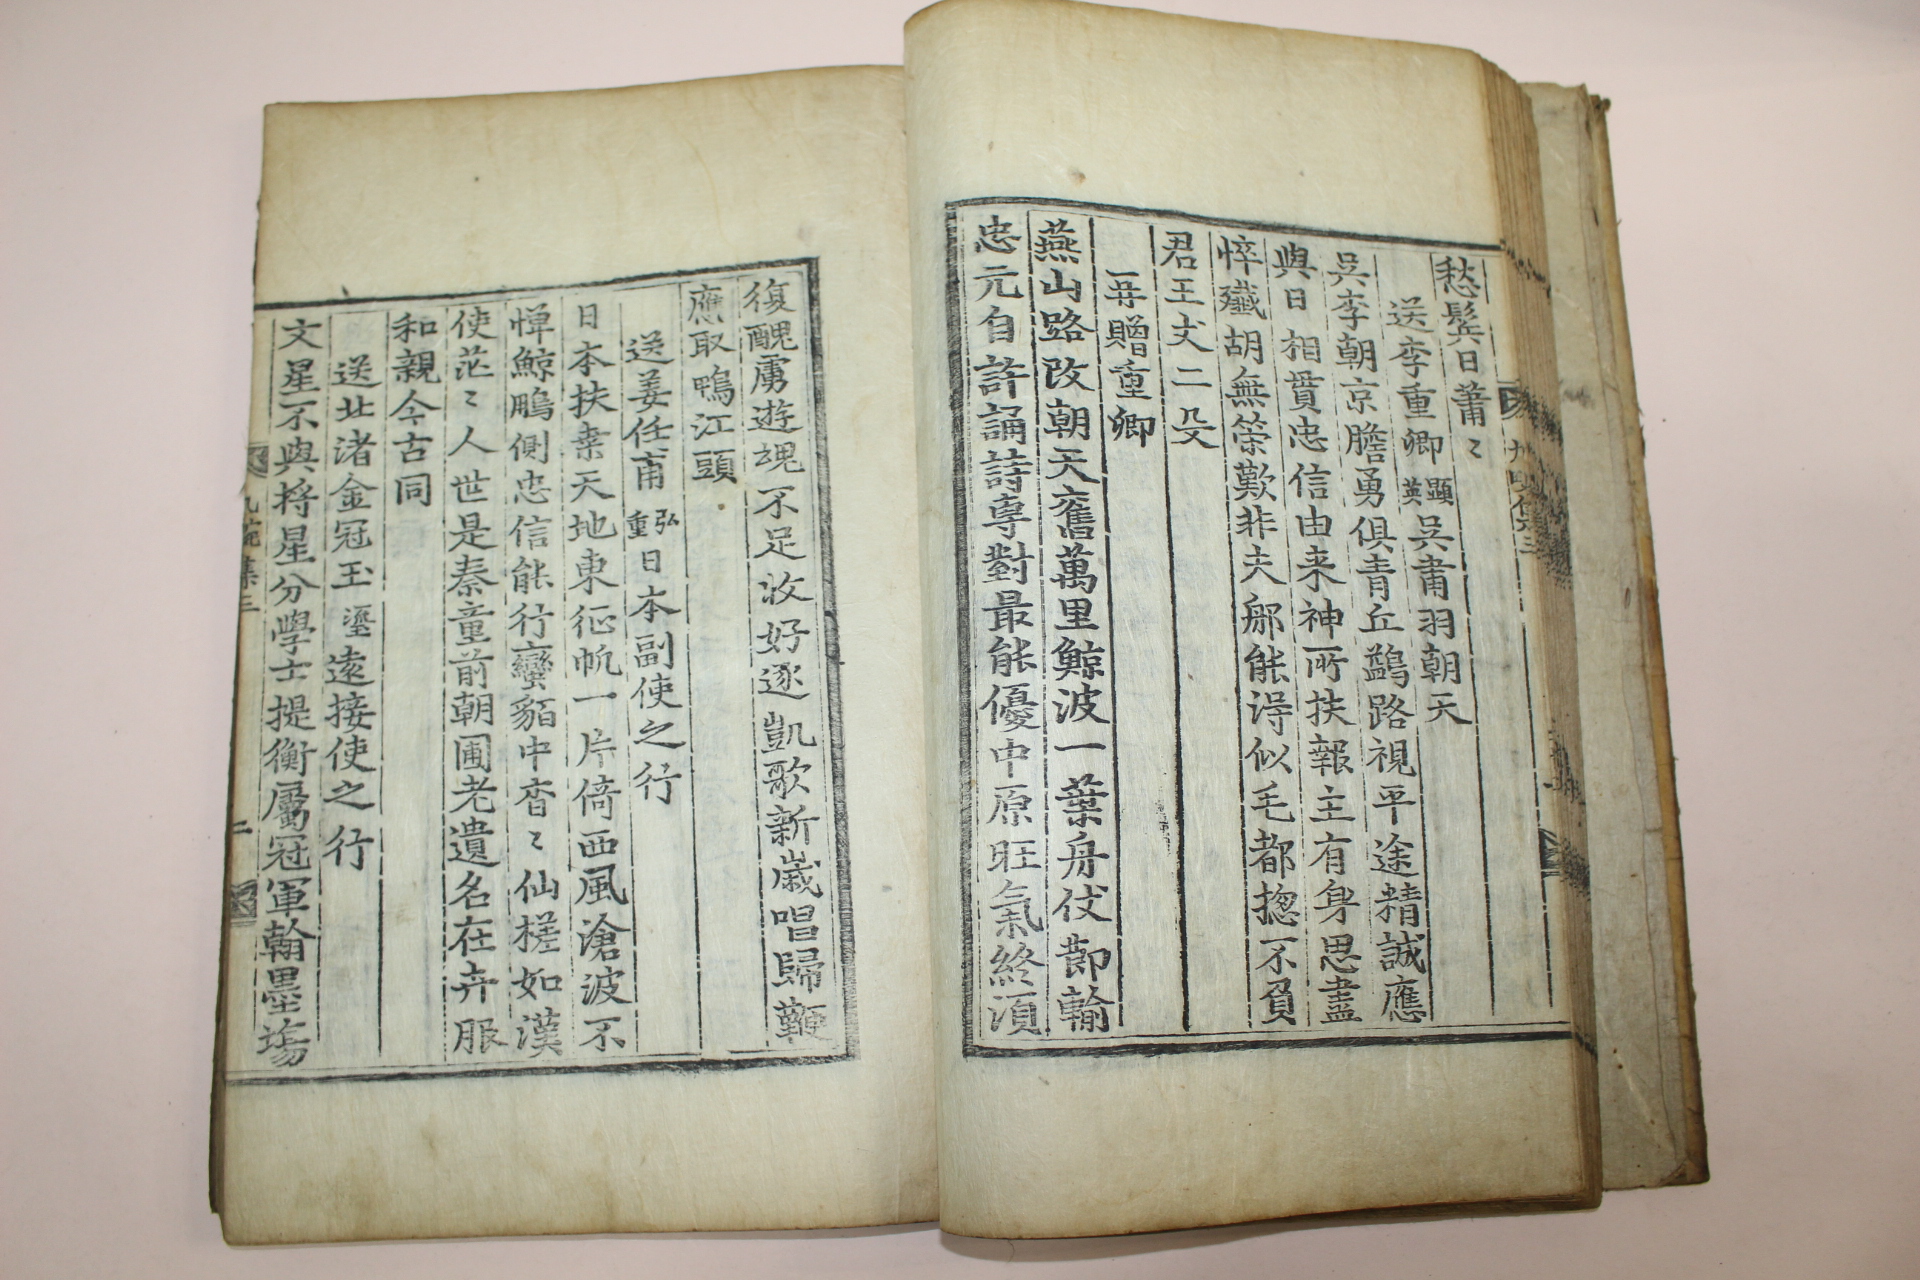 愁鬂日蕭〻
送李重卿顯英吳肅羽朝天
吳李朝京膽勇俱青丘鷁路視平途精誠應
與日相貫忠信由来神所扶報主有身思盡
悴殱胡無策歎非夫那能淂似毛都揔不負
君王丈二殳
再贈重卿
燕山路改朝天舊萬里鯨波一葉舟伏節輸
忠元自許誦詩專對最能優中原旺氣終湏
復醜虜遊魂不足收好逐凱歌新歲唱歸鞭
應取鴨江頭
送姜任甫弘重日本副使之行
日本扶桒天地東征帆一片倚西風滄波不
憚鯨鵬側忠信能行蠻貊中杳〻仙槎如漢
使茫〻人世是秦童前朝圃老遺名在卉服
和親今古同
送北渚金冠玉瑬遠接使之行
文星不與將星分學士提衡屬冠軍翰墨塲
集三
二